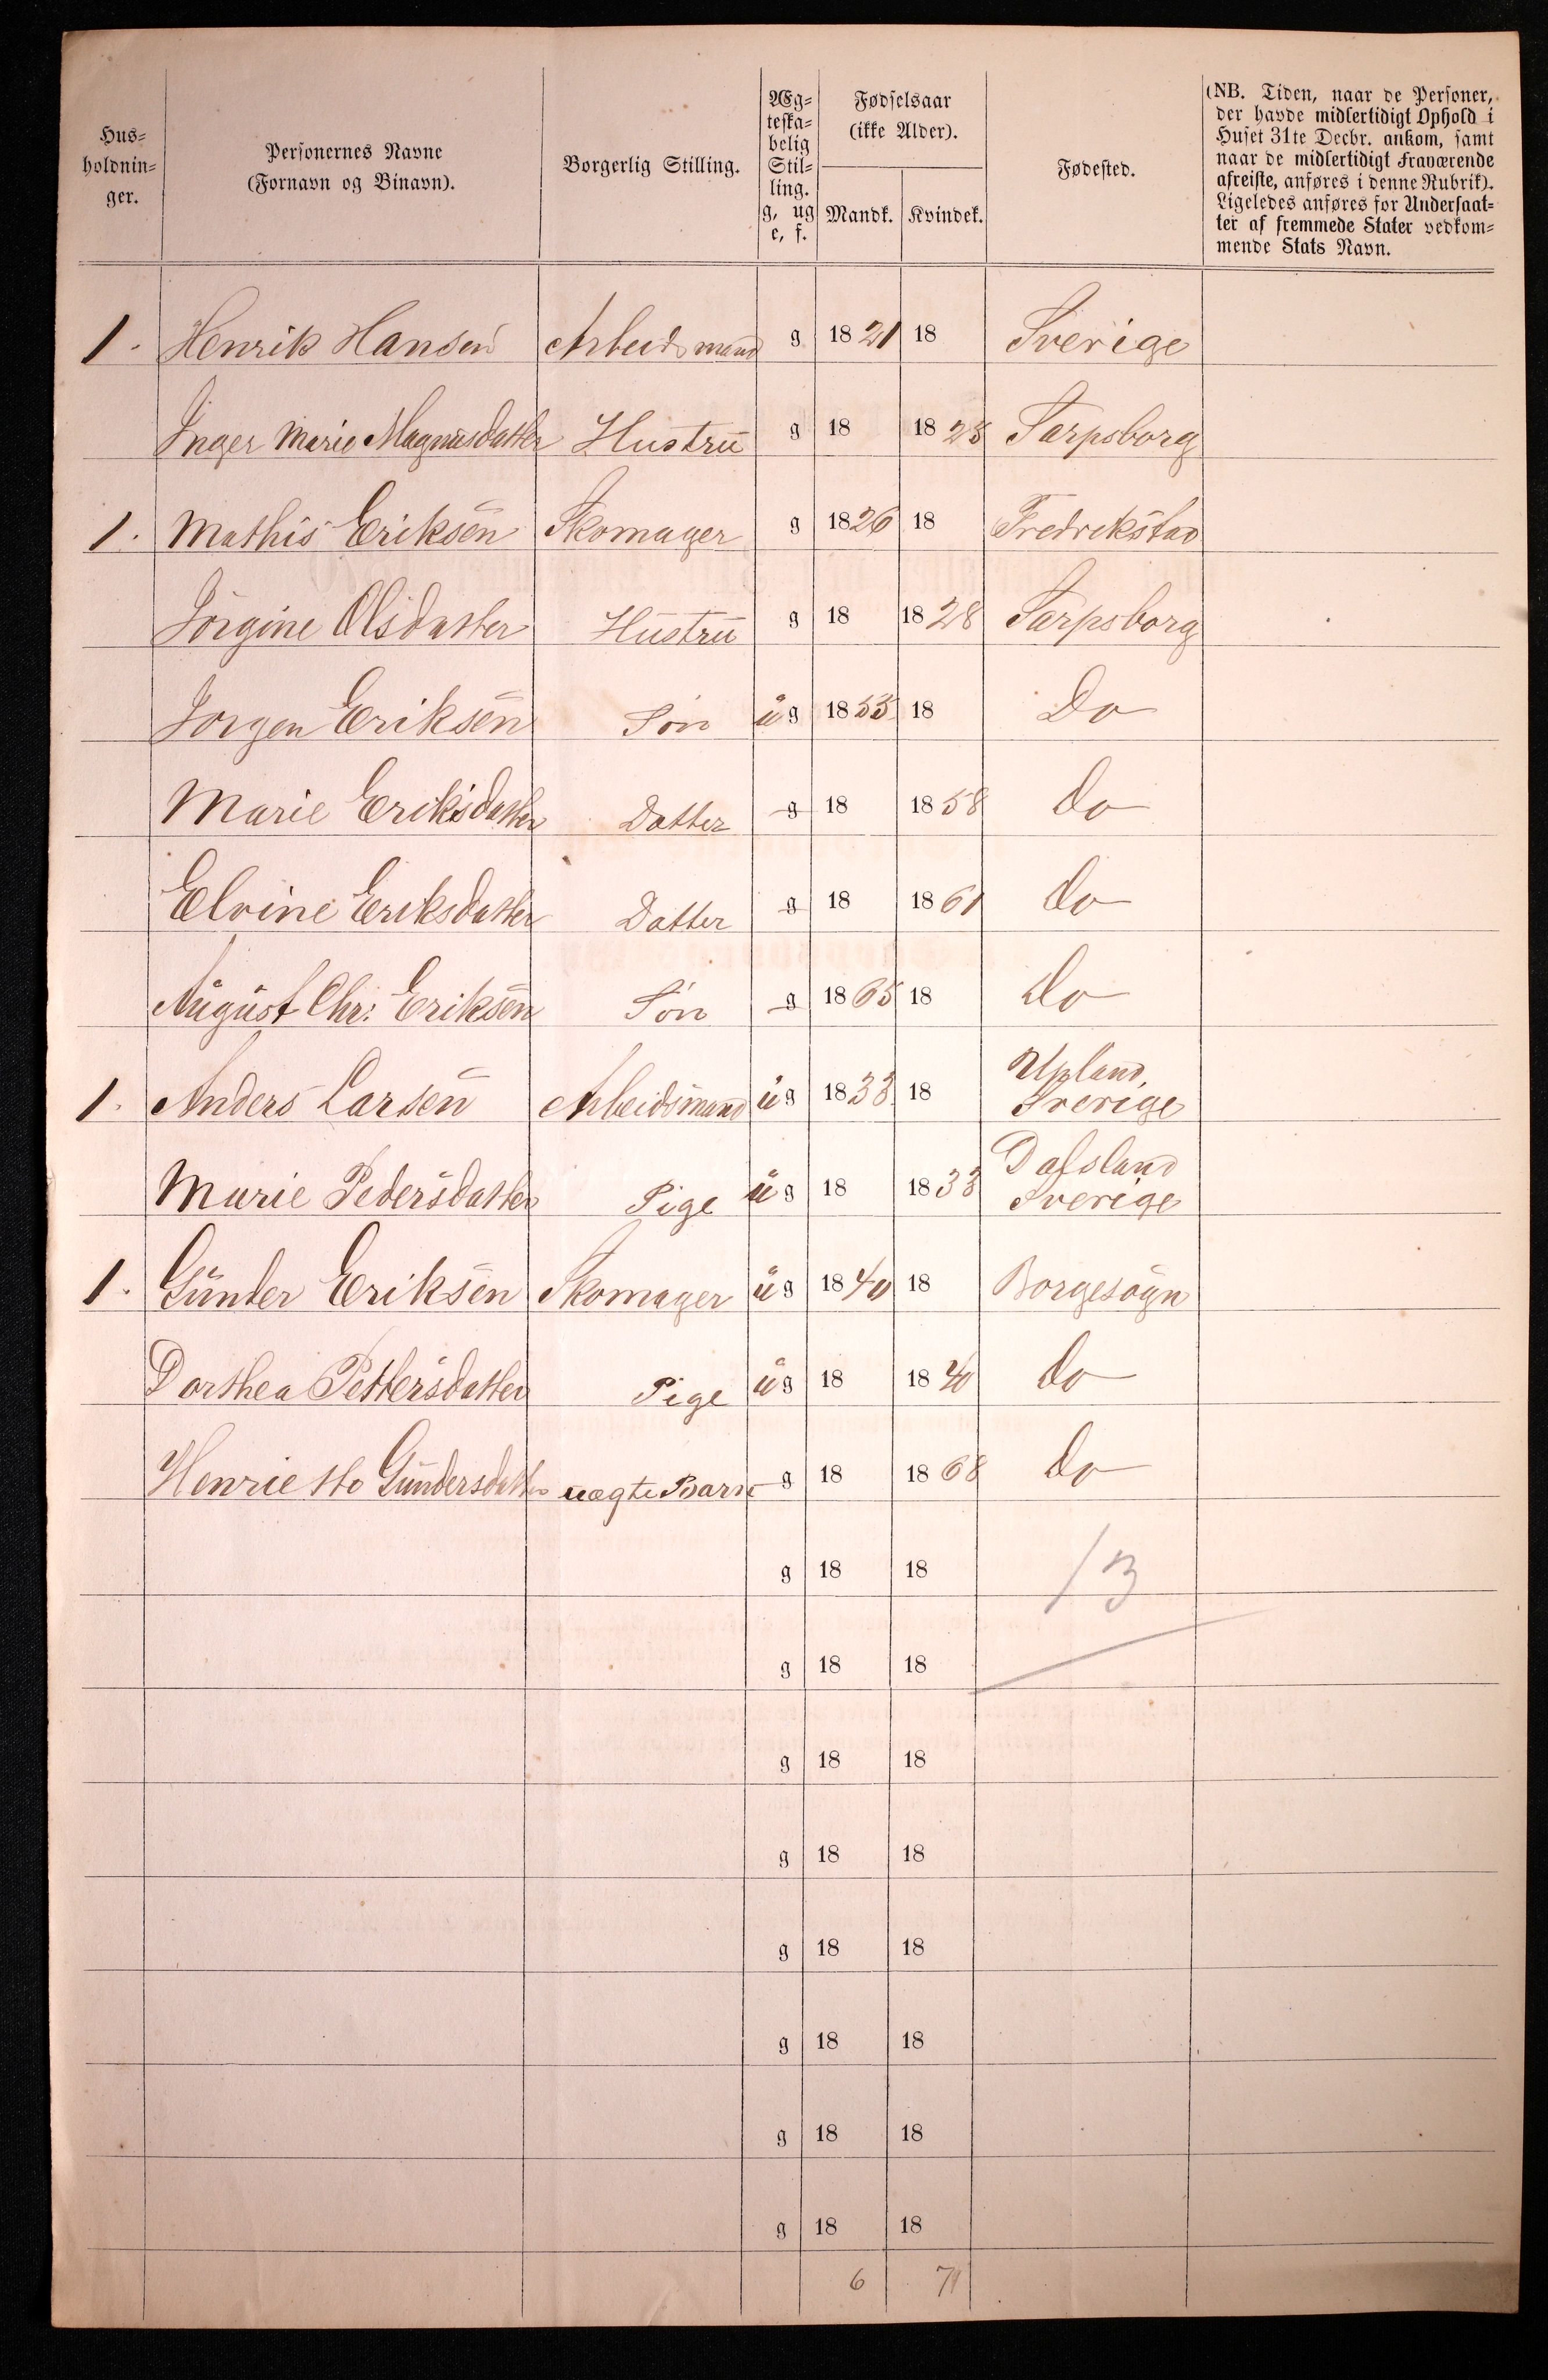 Hus=
holdnin=
ger.
Personernes Navne
(Fornavn og Binavn).
Borgerlig Stilling.
Æg=
teska=
belig
Stil=
ling.
g, ug
e, f.
Fødselsaar
(ikke Alder).
Mandk. Kvindek.
Fødested.
(NB. Tiden, naar de Personer,
der havde midlertidigt Ophold i
Huset 31te Decbr. ankom, samt
naar de midlertidigt Fraværende
afreiste, anføres i denne Rubrik).
Ligeledes anføres for Undersaat=
ter af fremmede Stater vedkom=
mende Stats Navn.
1. Henrik Hansen Arbeidsmand g 1821 18 Sverige
Inger Marie Magnusdatter Hustru g 18 1823 Sarpsborg
1. Mathis Eriksen Skomager g 1826 18 Fredrikstad
Jörgine Olsdatter Hustru g 18 1828 Sarpsborg
Jorgen Eriksen Sön ug 1853 18 Do
Marie Eriksdatter Datter g 18 1858 do
Elvine Eriksdatter Datter g 18 1861 do
August Chr: Eriksen Sön g 1865 18 do
1. Anders Larsen Arbeidsmand ug 1833 18 Upland,
Sverige
Marie Pedersdatter Pige ug 18 1833 Dalsland
Sverige
1. Gunder Eriksen Skomager ug 1840 18 Borgesogn
Dorthea Pettersdatter Pige ug 18 1840 do
Henriette Gundersdatter uægte Barn g 18 1868 do
g 18 18 13
g 18 18
g 18 18
g 18 18
g 18 18
g 18 18
g 18 18
g 18 18
6 7